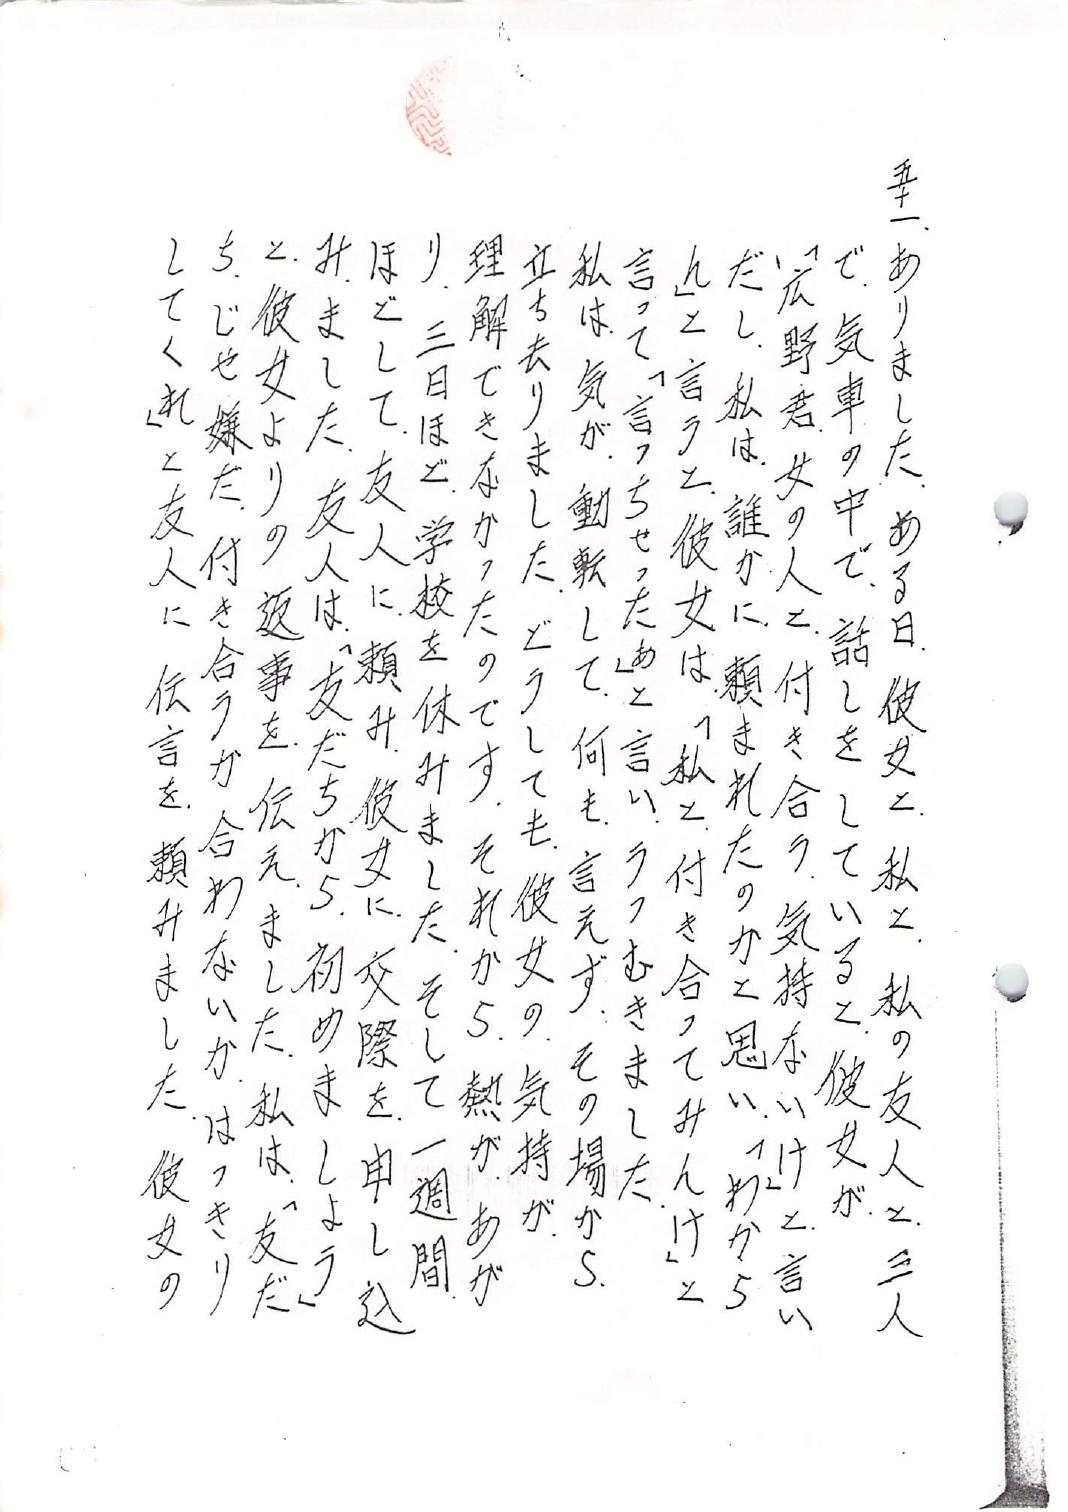 五十一、ありました、ある日、彼女と、私と、私の友人と、三人
で、気車の中で、話しを、していると、彼女が、
「広野君、女の人と、付き合う、気持ないけ」と、言い
だし、私は、誰かに、頼まれたのかと思い、「わから
ん」と言うと、彼女は、「私と、付き合ってみんけ」と
言って、「言っちゃったぁ」と言い、うつむきました、
私は、気が、動転して、何も、言えず、その場から、
立ち去りました、どうしても、彼女の、気持が、
理解できなかったのです、それから、熱が、あが
り、三日ほど、学校を休みました、そして一週間、
ほどして、友人に、頼み、彼女に、交際を、申し込
み、ました、友人は、「友だちから、初めましよう」
と、彼女よりの返事を、伝え、ました、私は、「友だ
ち、じゃ嫌だ、付き合うか合わないか、はっきり
してくれ」と友人に伝言を、頼みました、彼女の